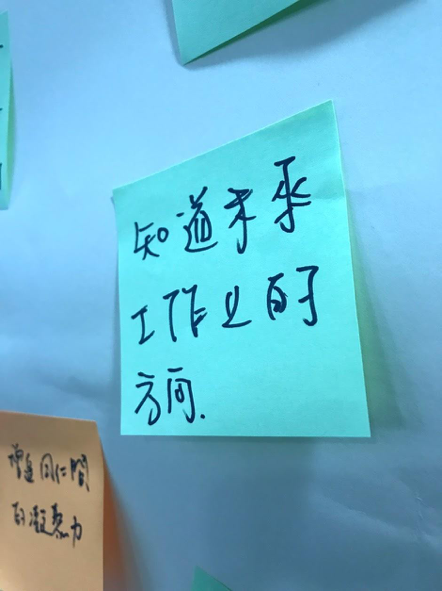 知道未來
工作上的
方向.
增進同仁間
的凝聚力